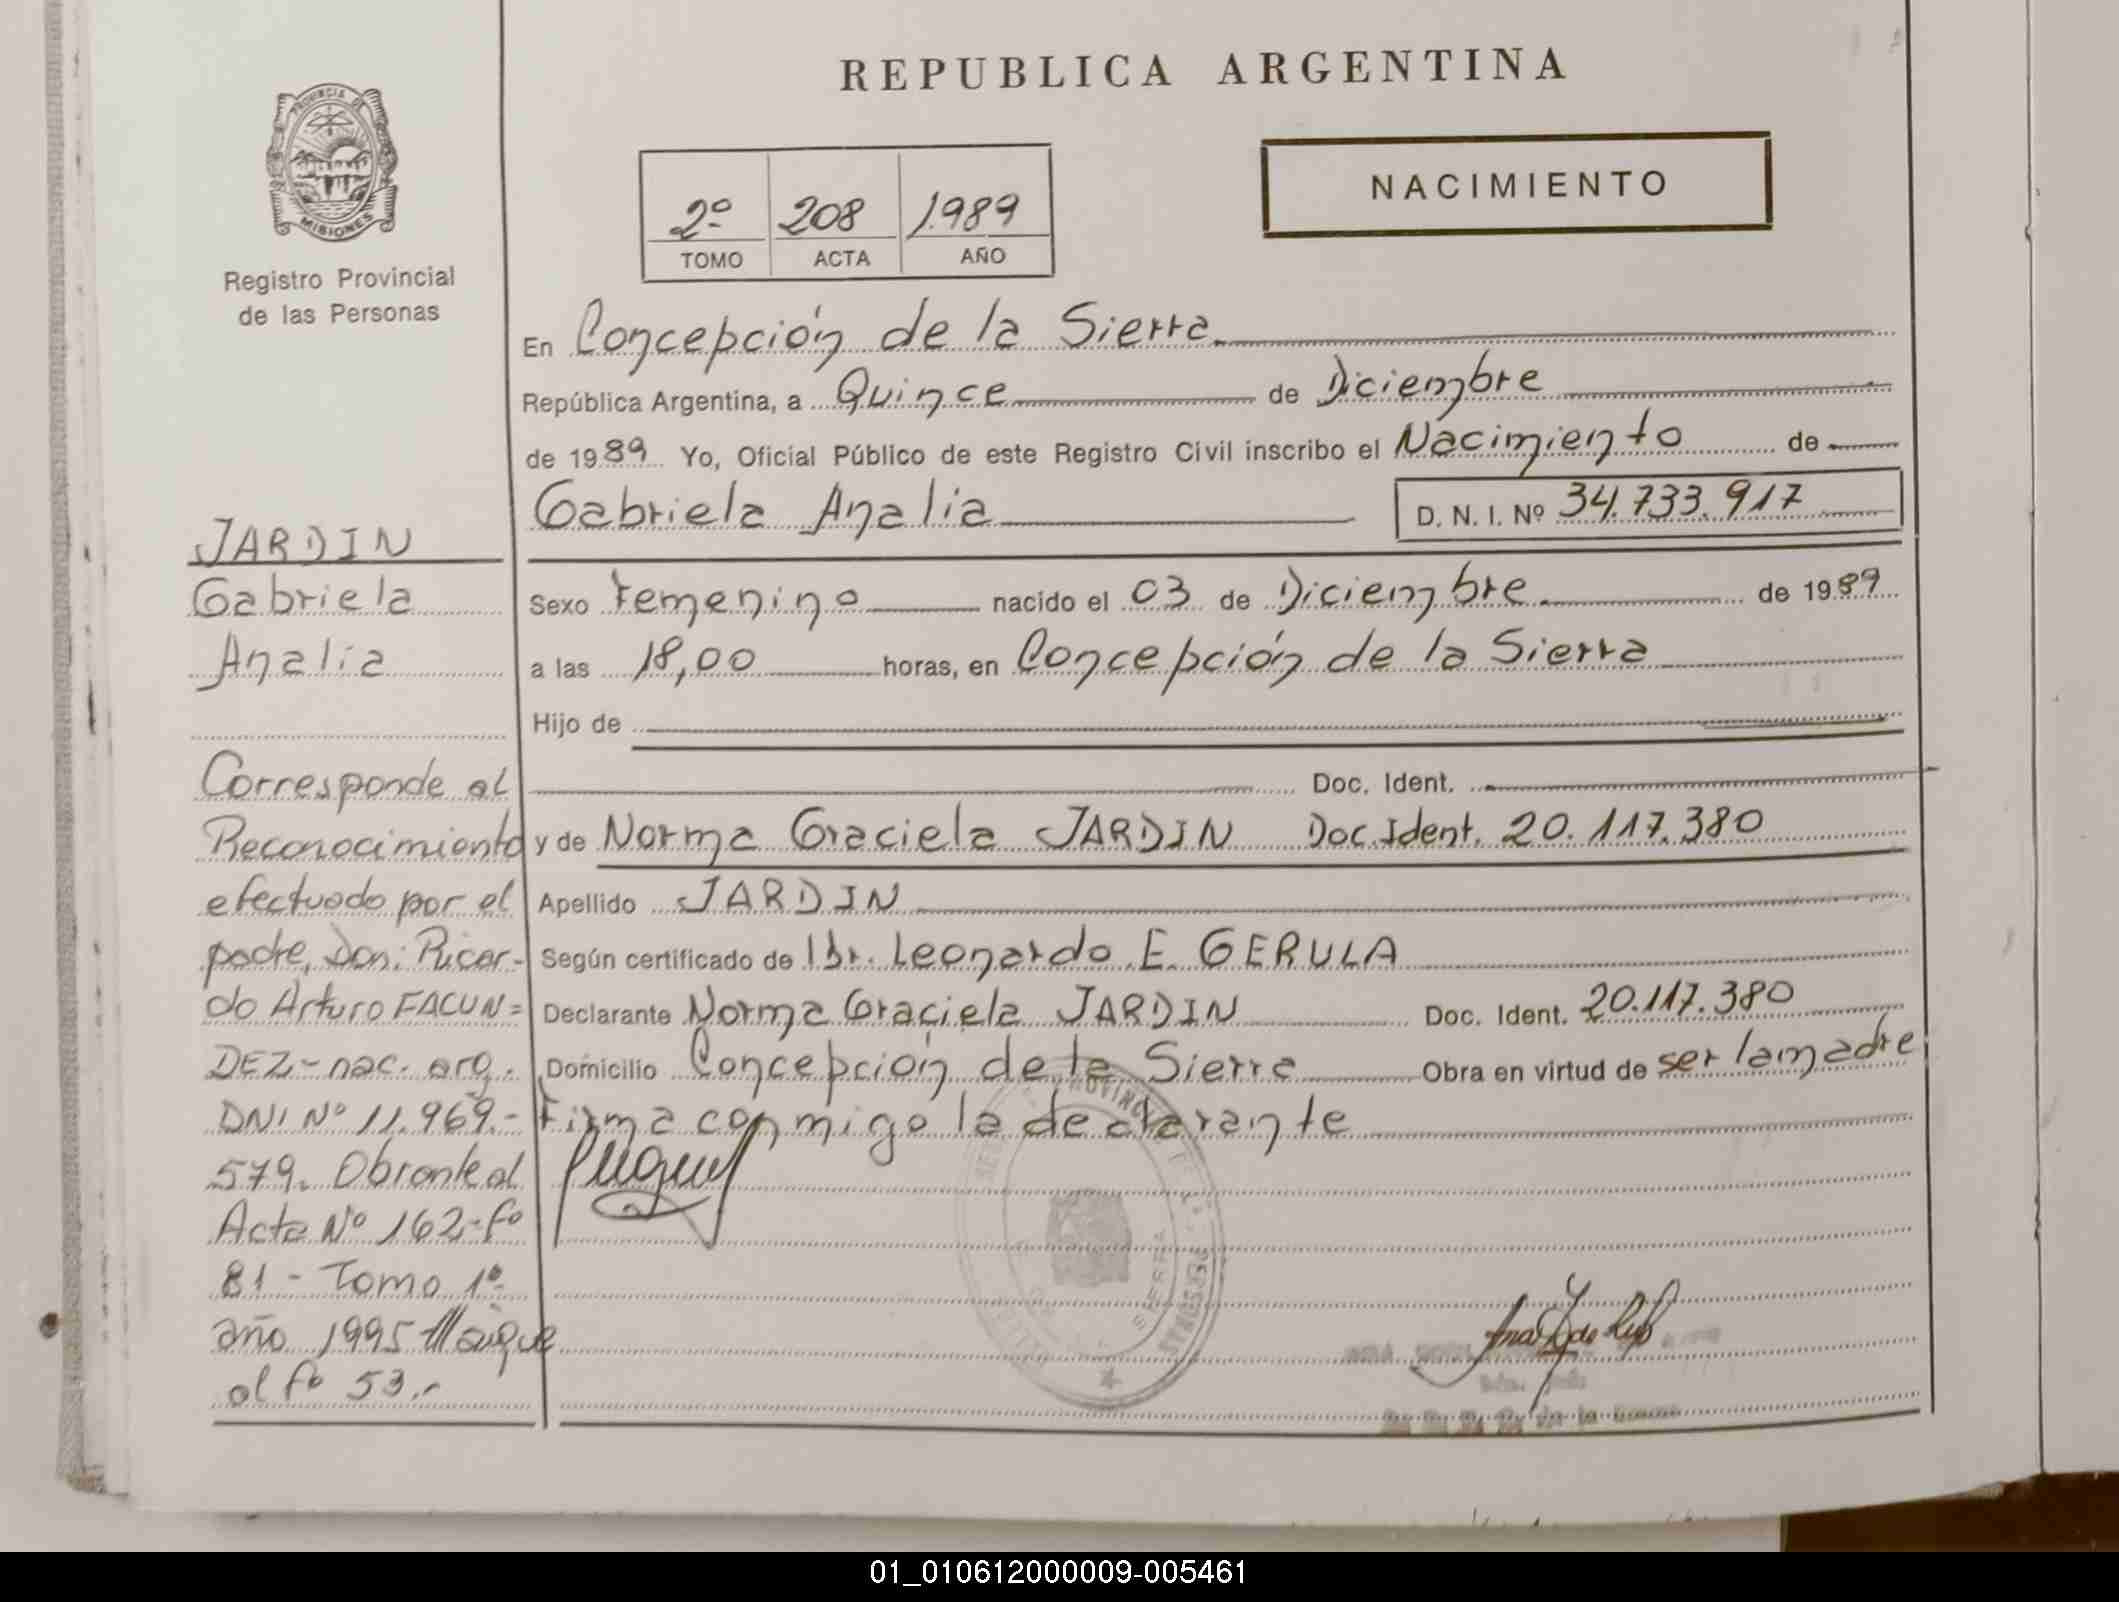 REPUBLICA ARGENTINA
PROVINCIA DE
MISIONES
Registro Provincial
de las Personas
2º 208 1.989
TOMO ACTA AÑO
NACIMIENTO
En Concepción de la Sierra
República Argentina, a Quince de Diciembre
de 1989 Yo, Oficial Público de este Registro Civil inscribo el Nacimiento de
Gabriela Analia D. N. I. Nº 34.733.917
Sexo Femenino nacido el 03 de Diciembre de 1989
a las 18,00 horas, en Concepción de la Sierra
Hijo de
Doc. Ident.
y de Norma Graciela JARDIN Doc. Ident. 20.117.380
Apellido JARDIN
Según certificado de Dr. Leonardo E. GERULA
Declarante Norma Graciela JARDIN Doc. Ident. 20.117.380
Domicilio Concepción de la Sierra Obra en virtud de ser la madre
Firma conmigo la declarante
JARDIN
Gabriela
Analia
Corresponde al
Reconocimiento
efectuado por el
padre, Don: Ricar-
do Arturo FACUN=
DEZ - nac. arg.
DNI Nº 11.969.-
579. Obrante al
Acta Nº 162-fº
81 - Tomo 1º-
año 1995
al fº 53.-
01_010612000009-005461